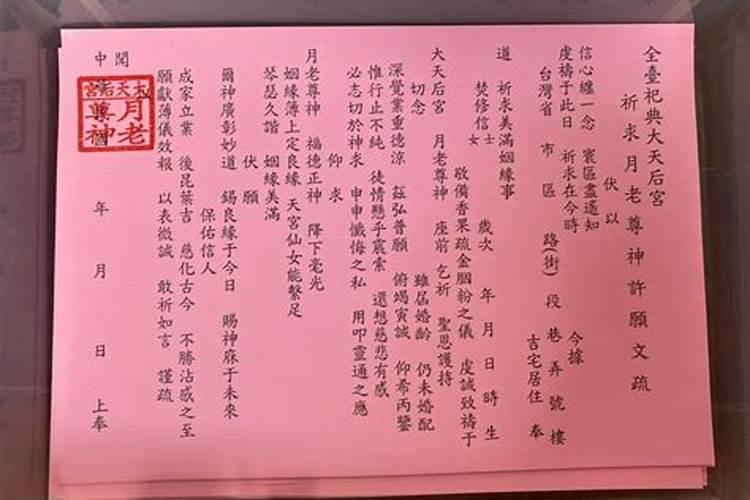 全臺祀典大天后宮
祈求月老尊神許願文疏
伏以
信心纔一念 寰區盡遙知
虔禱于此日 祈求在今時
今據
台灣省 市 區 路(街) 段 巷 弄 號 樓
吉宅居住 奉
道 祈求美滿姻緣事
焚修信士女 歲次 年 月 日 時 生
敬備香果疏金胭粉之儀 虔誠致禱于
大天后宮 月老尊神 座前 乞祈 聖恩護持
切念 雖屆婚齡 仍未婚配
深覺業重德涼 茲弘普願 俯竭寅誠 仰希丙鑒
惟行止不純 徒情懸乎震索 還想慈悲有感
必志切於神求 申申懺悔之私 用叩靈通之應
仰求
月老尊神 福德正神 降下毫光
姻緣簿上定良緣 天宮仙女能繫足
琴瑟久諧 姻緣美滿
伏願
爾神廣彰妙道 錫良緣于今日 賜神庥于未來
保佑信人
成家立業 後昆葉吉 慈化古今 不勝沾感之至
願獻薄儀效報 以表微誠 敢祈如言 謹疏
聞
中 年 月 日 上奉
大天后宮
月老
尊神